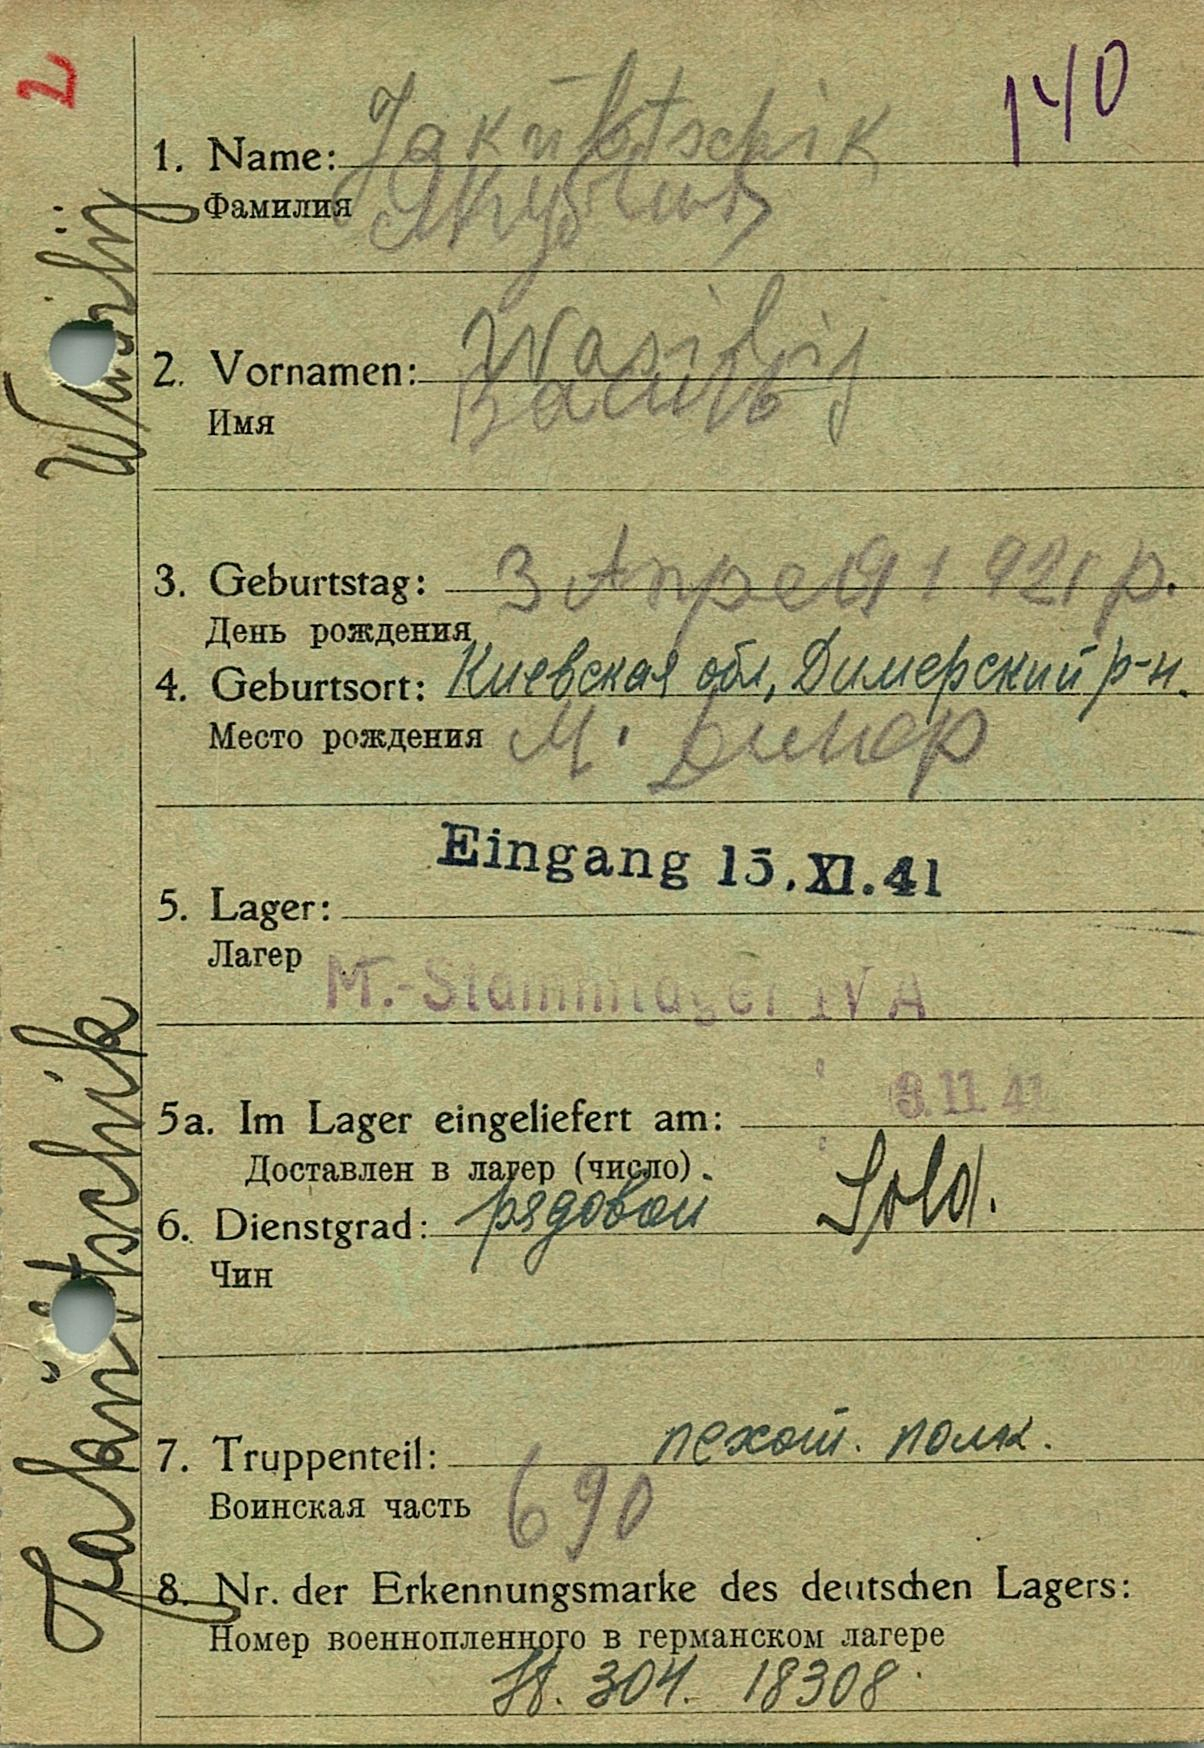 2
140
1. Name: Jakübtschik
Фамилия
2. Vornamen: Wasilij
Имя Василь
3. Geburtstag: 3 Апреля 1921 р.
День рождения
4. Geburtsort: Киевская обл, Димерский р-н.
Место рождения м. Димер
Eingang 15.XI.41
5. Lager:
Лагер M.-Stammlager IV A
5a. Im Lager eingeliefert am: 3.11.41
Доставлен в лагер (число).
6. Dienstgrad: рядовой Sold.
Чин
7. Truppenteil: пехот. полк.
Воинская часть 690
8. Nr. der Erkennungsmarke des deutschen Lagers:
Номер военнопленного в германском лагере
St. 304. 18308
Wasilij